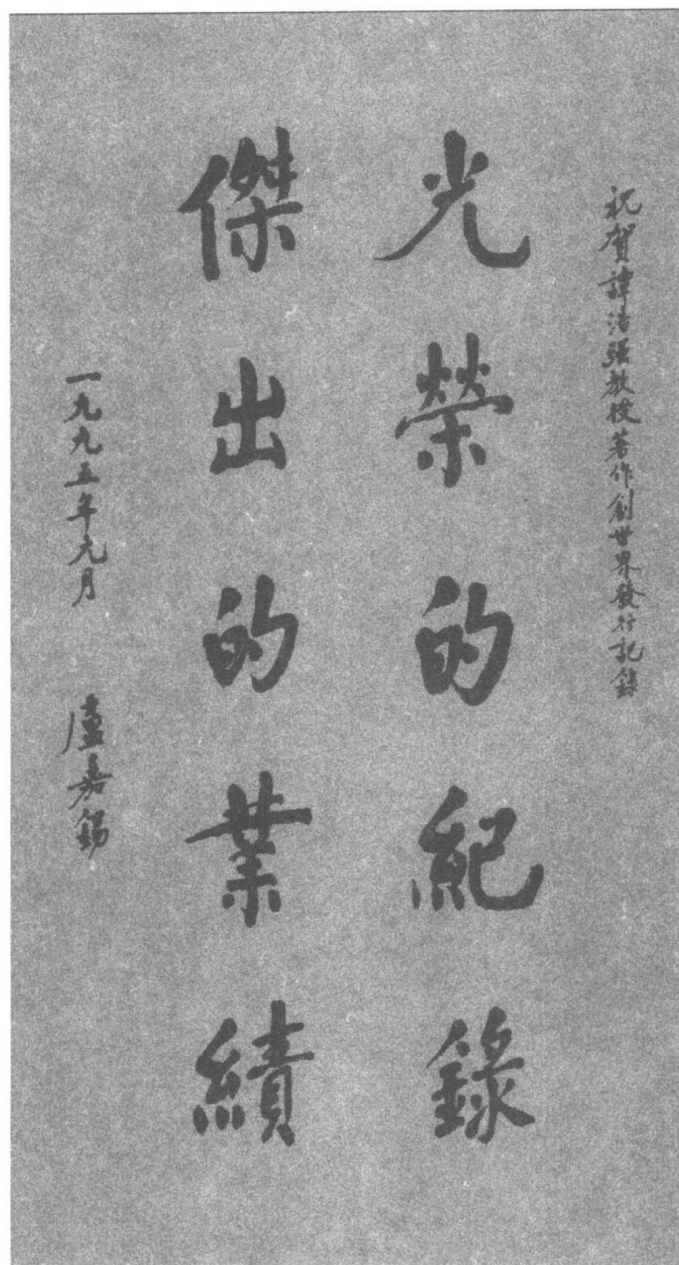 祝賀譚浩强教授著作創世界發行記錄
光榮的紀錄
傑出的業績
一九九五年元月 盧嘉錫